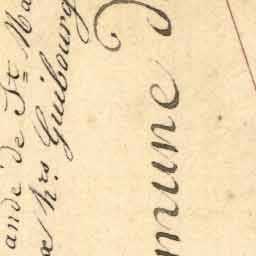 ande de St Ma
x hrs Guibourg
mune